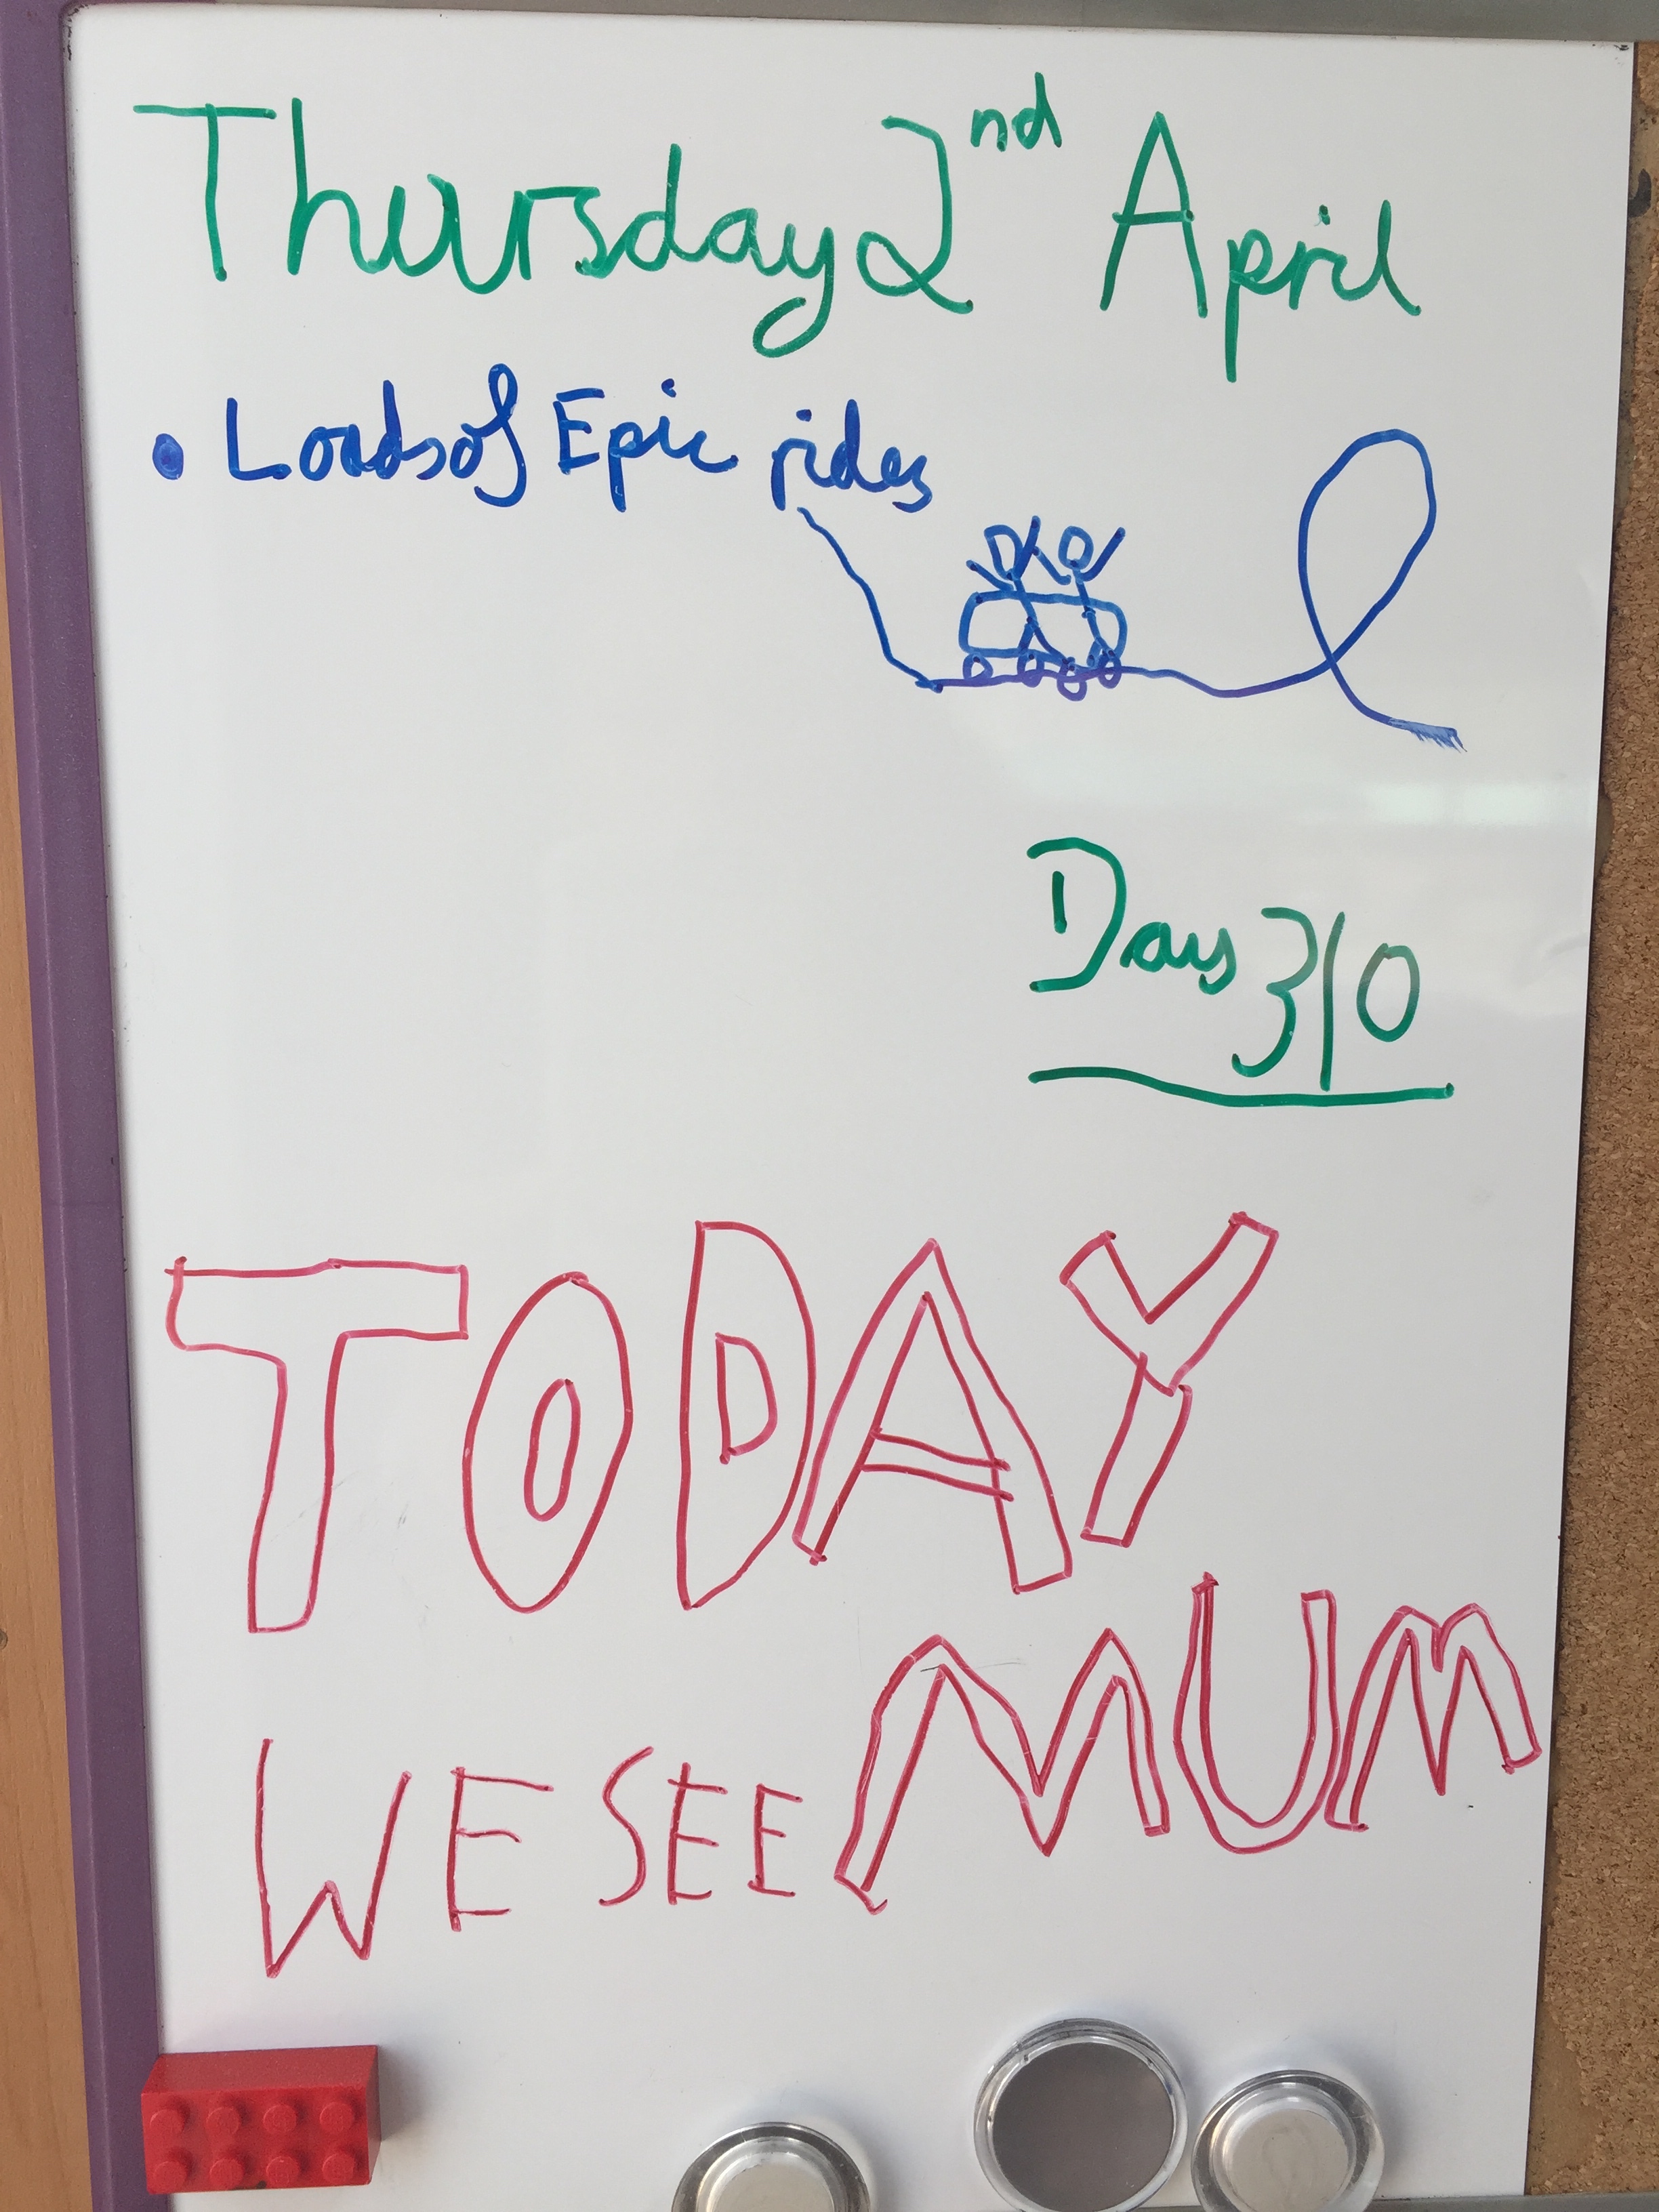 Thursday 2nd April
• Loads of Epic rides
Days 310
TODAY
WE SEE MUM